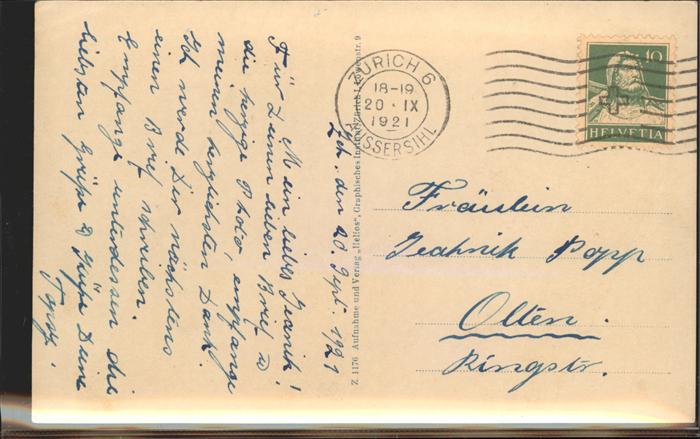 Zch. den 20. Sept. 1921
Mein liebes Jeanik!
Für Deinen lieben Brief &
die herzige Photo, empfange
meinen herzlichsten Dank.
Ich werde Dir nächstens
einen Brief schreiben.
Empfange unterdessen die
liebsten Grüße & Küße Deine
Z 1176 Aufnahme und Verlag „Helios“, Graphisches Institut Zürich 1, Löwenstr. 9
ZÜRICH 6
18-19
20·IX
1921
AUSSERSIHL
10
HELVETIA
Fräulein
Jeahnik Popp
Olten.
Ringstr.